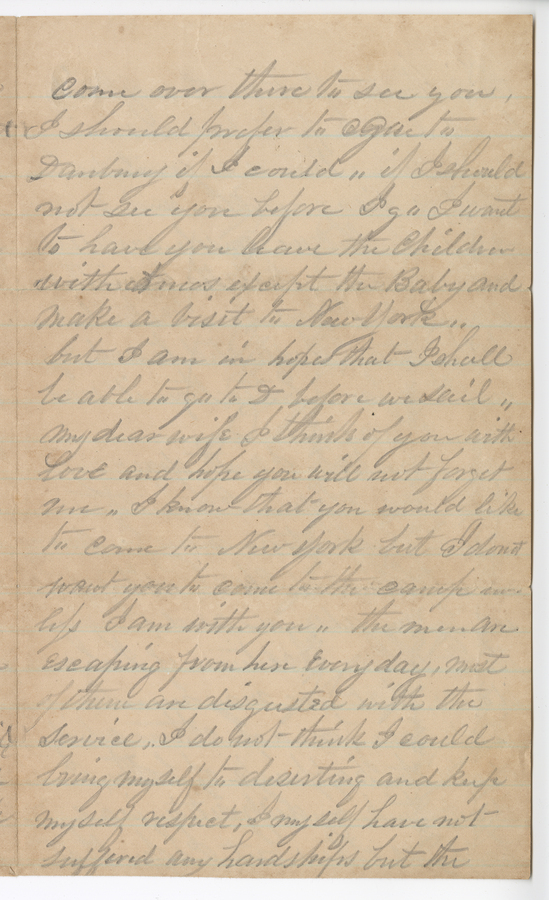 come over there to see you,
I should prefer to go to
Danbury if I could,, if I should
not see you before I go I want
to have you leave the Children
with Amos except the Baby and
make a visit to New York,,
but I am in hopes that I shall
be able to go to D before we sail,,
my dear wife I think of you with
Love and hope you will not forget
me,, I know that you would like
to come to New York but I dont
want you to come to the camp un-
less I am with you,, the men are
escaping from here Every day, most
of them are disgusted with the
Service,, I do not think I could
bring myself to deserting and keep
myself respect, I myself have not
suffered any hardships but the